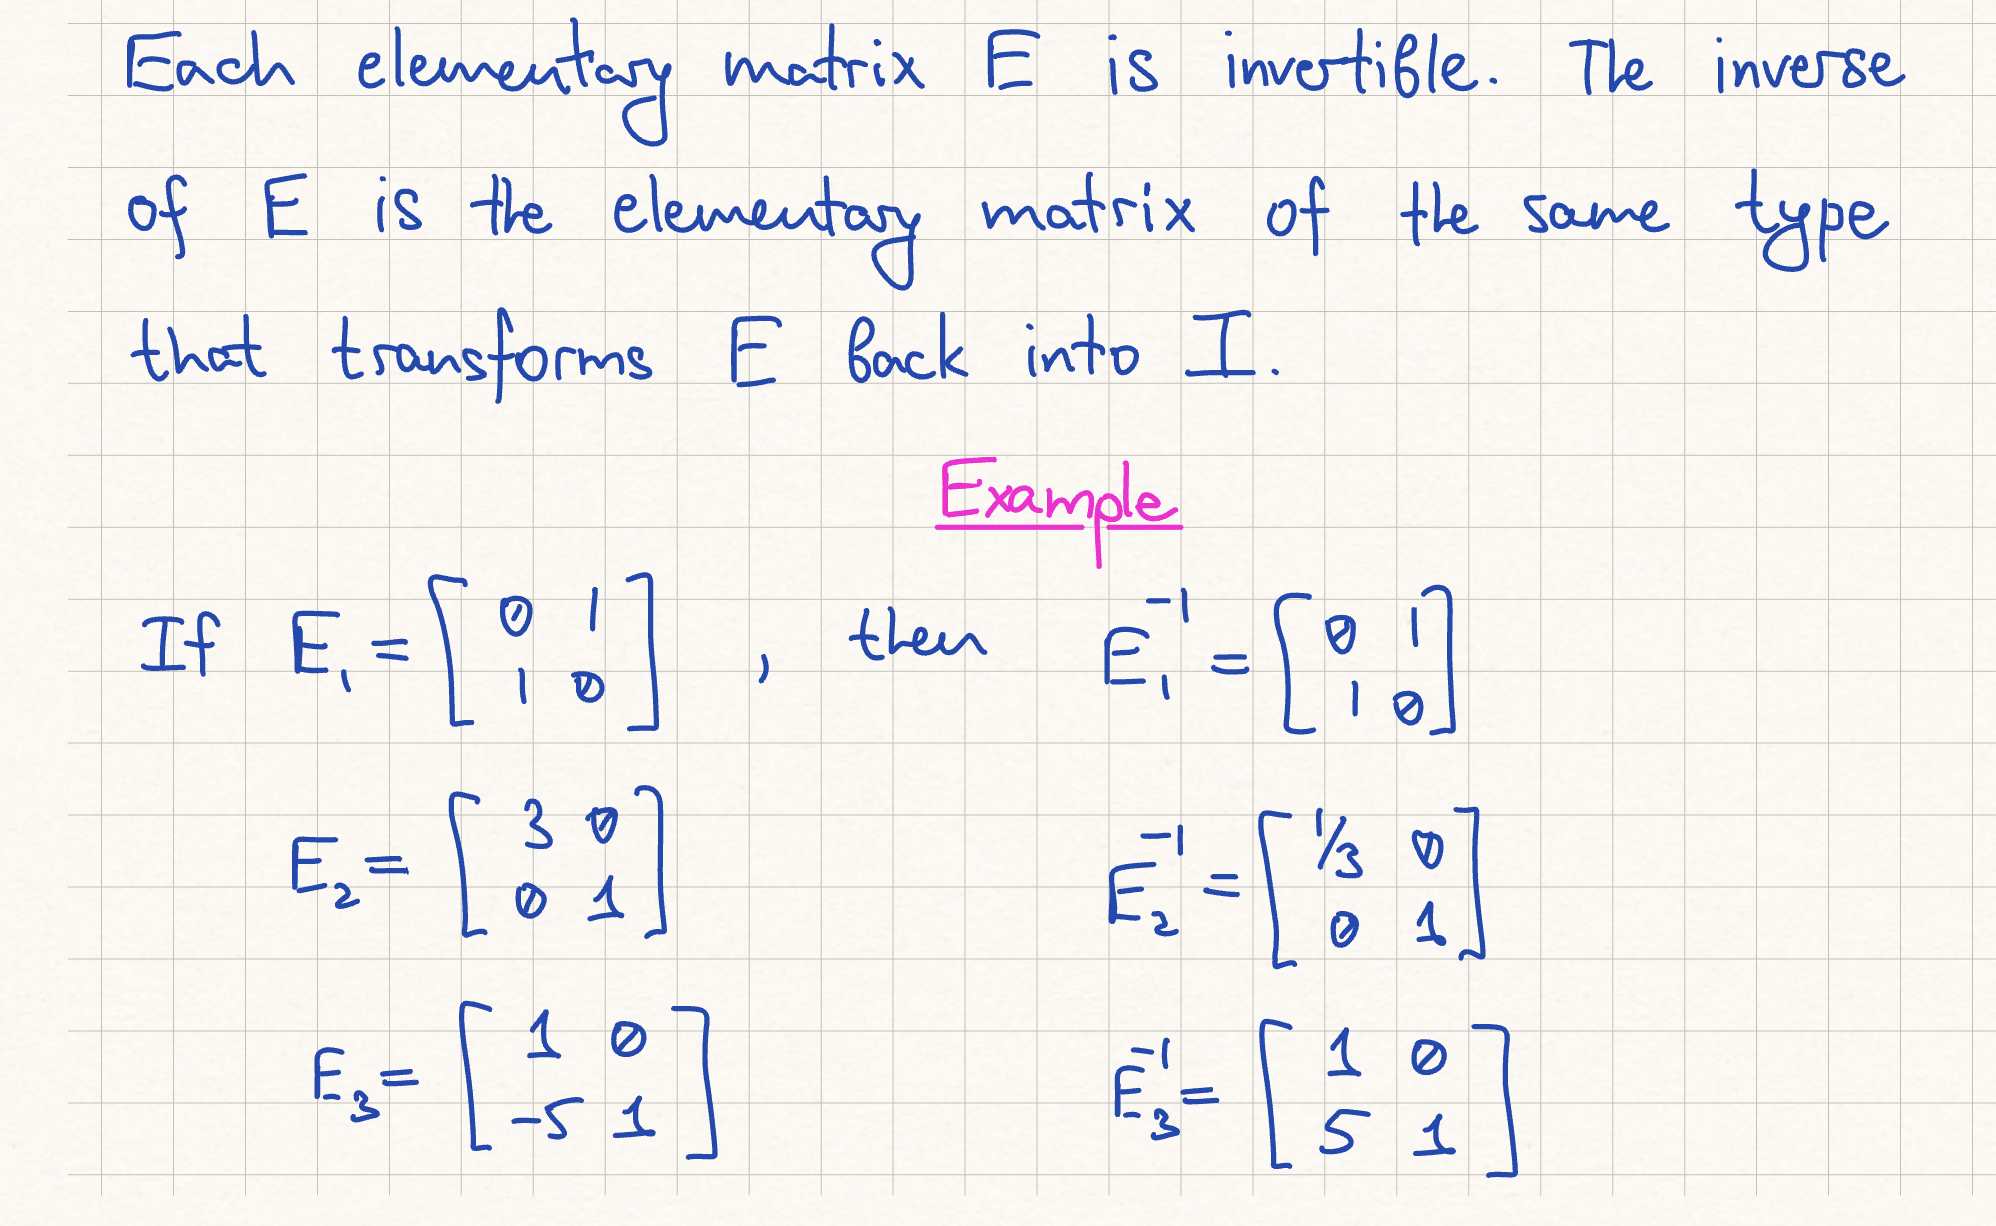 Each elementary matrix E is invertible. The inverse
of E is the elementary matrix of the same type
that transforms E back into I.
Example
If E₁ = [0 1; 1 0], then E₁⁻¹ = [0 1; 1 0]
E₂ = [3 0; 0 1] E₂⁻¹ = [1/3 0; 0 1]
E₃ = [1 0; -5 1] E₃⁻¹ = [1 0; 5 1]